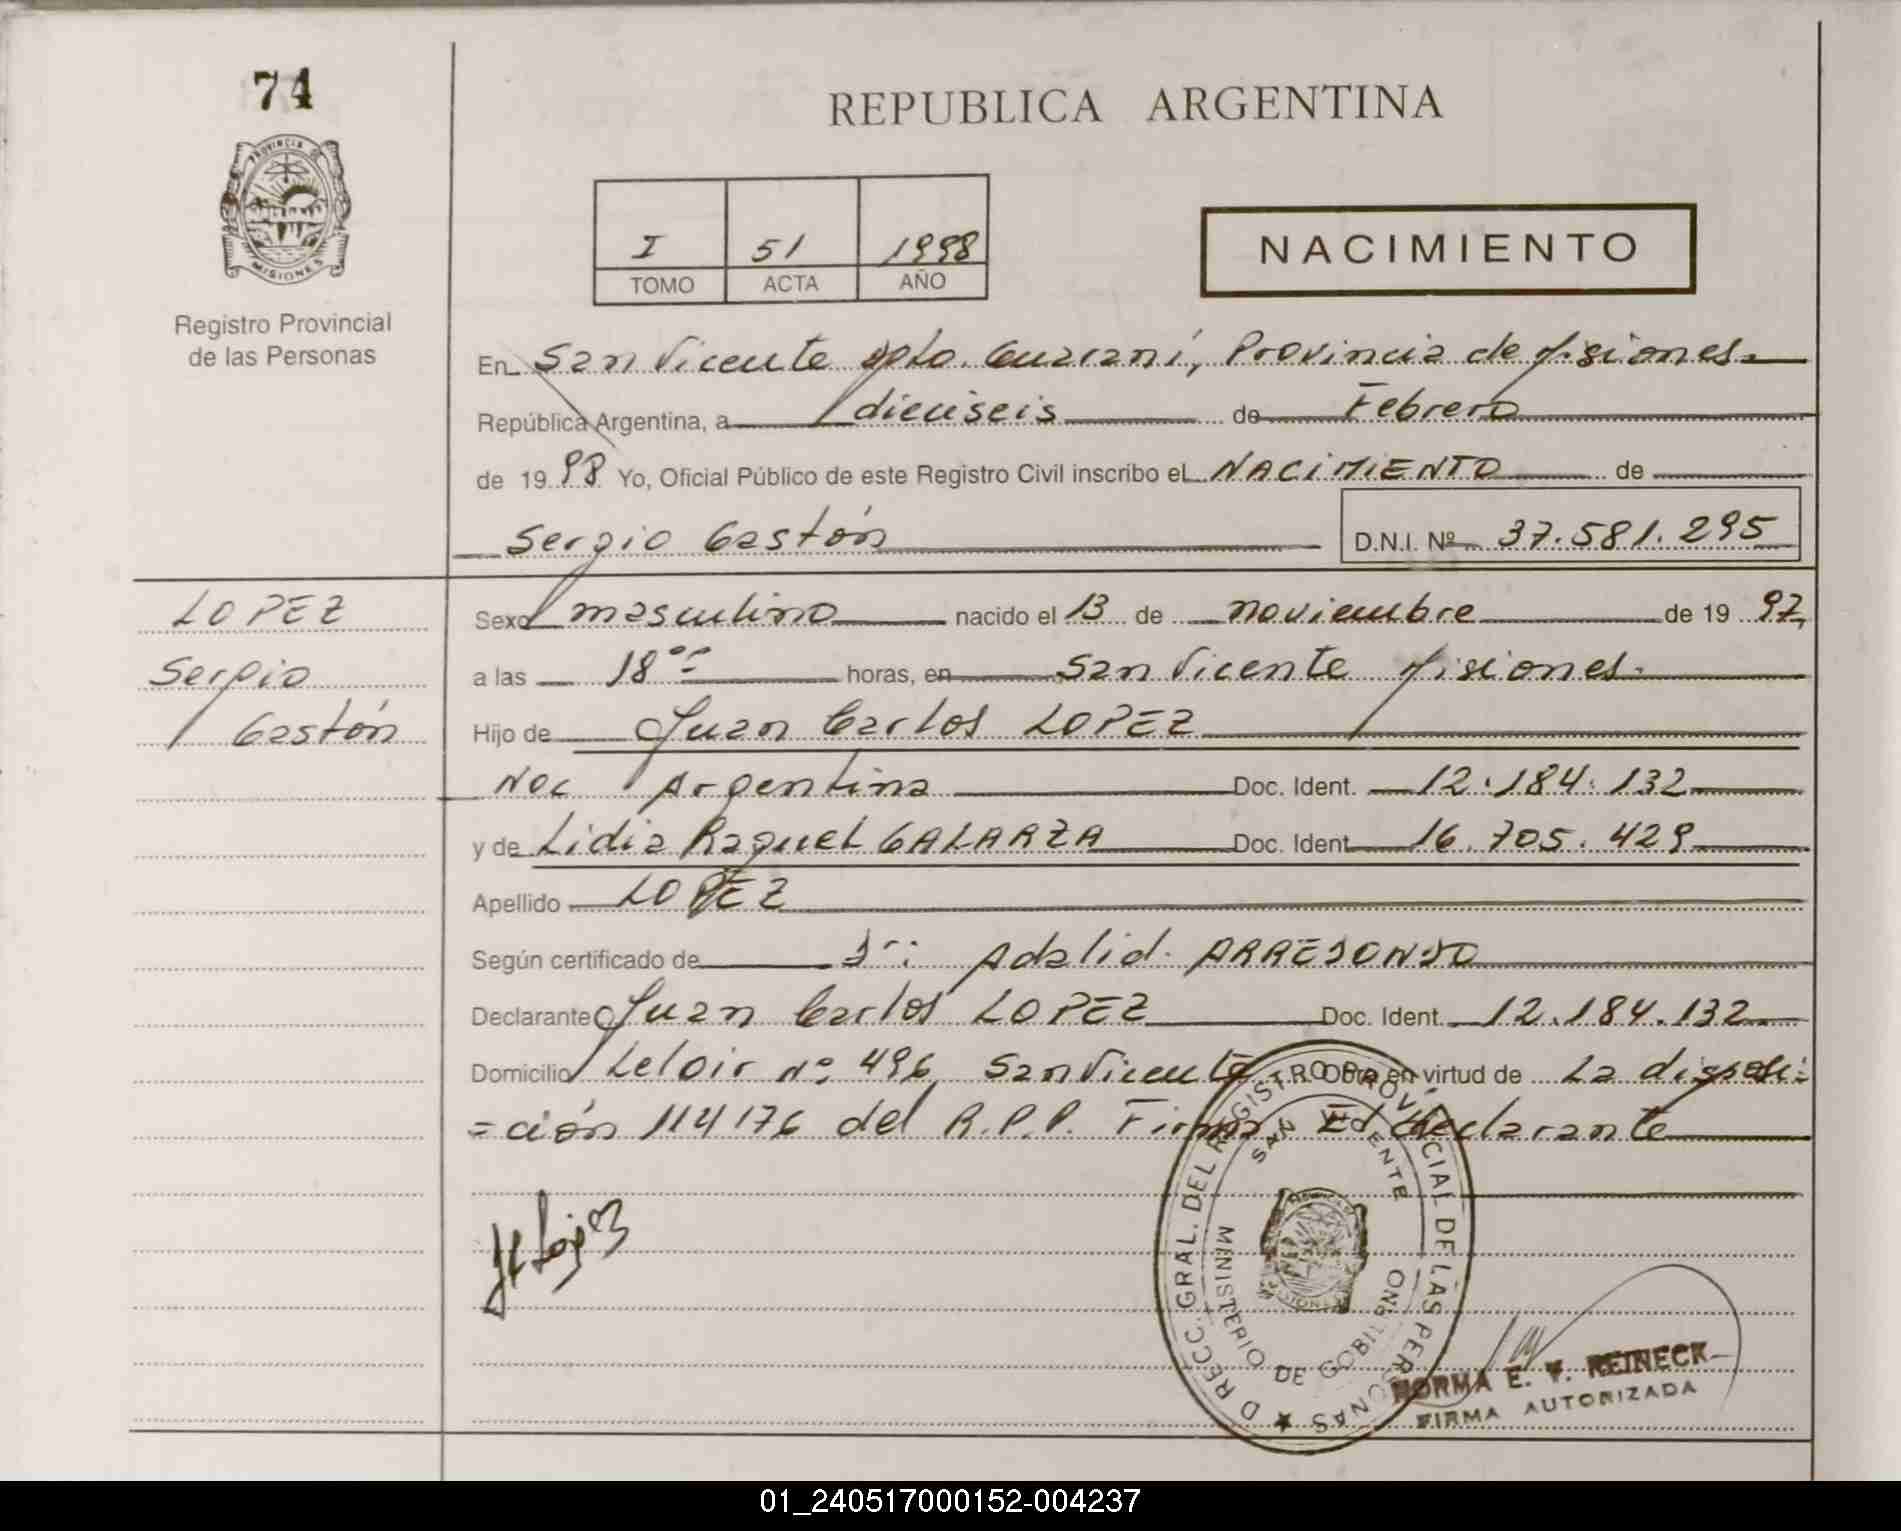 74
REPUBLICA ARGENTINA
PROVINCIA DE
MISIONES
Registro Provincial
de las Personas
I 51 1998
TOMO ACTA AÑO
NACIMIENTO
En San Vicente Dpto. Guaraní, Provincia de Misiones
República Argentina, a dieciseis de Febrero
de 1998 Yo, Oficial Público de este Registro Civil inscribo el NACIMIENTO de
Sergio Gastón D.N.I. Nº 37.581.295
LOPEZ
Sergio
Gastón
Sexo masculino nacido el 13 de noviembre de 1997,
a las 18ºº horas, en San Vicente Misiones.
Hijo de Juan Carlos LOPEZ
Nac Argentina Doc. Ident. 12.184.132
y de Lidia Raquel GALARZA Doc. Ident. 16.705.429
Apellido LOPEZ
Según certificado de Dr: Adalid ARREDONDO
Declarante Juan Carlos LOPEZ Doc. Ident. 12.184.132
Domicilio Leloir Nº 496 San Vicente Obra en virtud de La disposi=
=ción 114176 del R.P.P. Firma El declarante
JC Lopez
DIRECC. GRAL. DEL REGISTRO PROVINCIAL DE LAS PERSONAS
SAN VICENTE
MINISTERIO DE GOBIERNO
NORMA E. V. REINECK
FIRMA AUTORIZADA
01_240517000152-004237